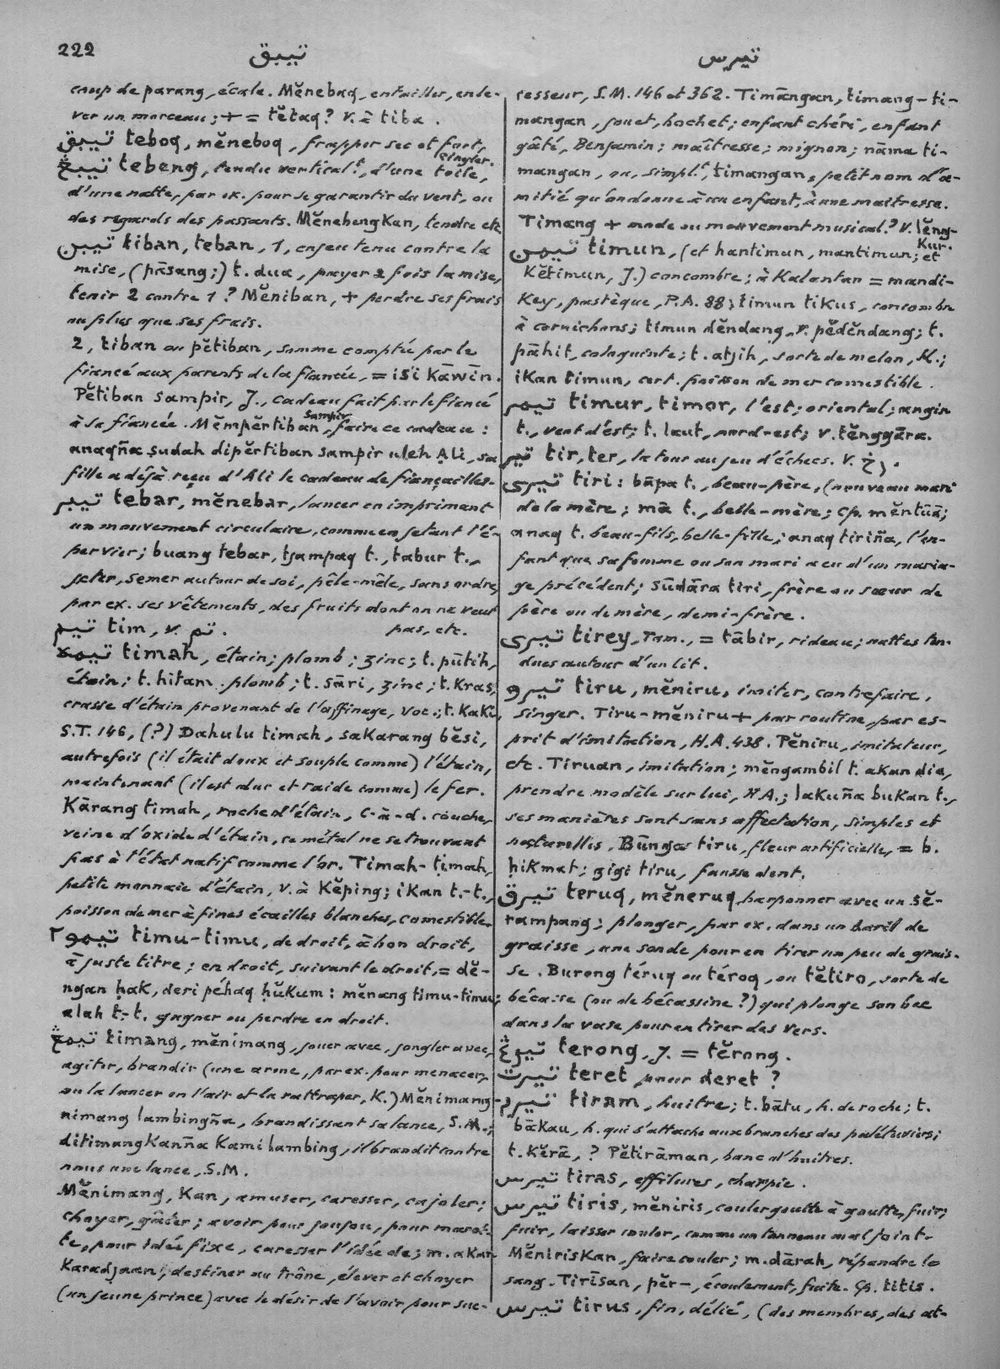 222
تيبق
تيرس
coup de parang, écale. Měnebaq, entailler, enle-
ver un morceau; + = tětaq? V. à tiba.
تيبق teboq, měneboq, frapper sec et fort,
cingler.
تيبڠ tebeng, tendu vertical.t, d'une toile,
d'une natte, par ex. pour se garantir du vent, ou
des regards des passants. MěnebengKan, tendre etc
تيبن tiban, teban, 1, enjeu tenu contre la
mise, (pāsang;) t. dua, payer 2 fois la mise,
tenir 2 contre 1? Měniban, + perdre ses frais
ou plus que ses frais.
2, tiban ou pětiban, somme comptée par le
fiancé aux parents de la fiancée, = isi Kāwīn.
Pětiban sampir, J., cadeau fait par le fiancé
à sa fiancée. Měmpěrtiban sampir, faire ce cadeau:
anaqña sudah dipěrtiban sampir uleh Ali, sa
fille a déjà reçu d'Ali le cadeau de fiançailles.
تيبر tebar, měnebar, lancer en imprimant
un mouvement circulaire, comme en jetant l'é-
pervier; buang tebar, tjampaq t., tabur t.,
jeter, semer autour de soi, pêle-mêle, sans ordre,
par ex. ses vêtements, des fruits dont on ne veut
pas, etc.
تيم tim, v. تم.
تيمه timah, étain; plomb; zinc; t. pūtih,
étain; t. hitam, plomb; t. sāri, zinc; t. Kras,
crasse d'étain provenant de l'affinage, Voc.; t. KaKi,
S.T. 146, (?) Dahulu timah, saKarang běsi,
autrefois (il était doux et souple comme) l'étain,
maintenant (il est dur et raide comme) le fer.
Kārang timah, roche d'étain, c.-à-d. couche,
veine d'oxide d'étain, ce métal ne se trouvant
pas à l'état natif comme l'or. Timah-timah,
petite monnaie d'étain, V. à Kěping; iKan t.-t.,
poisson de mer à fines écailles blanches, comestible.
تيمو٢ timu-timu, de droit, à bon droit,
à juste titre; en droit, suivant le droit, = dě-
ngan ḥak, deri péhaq ḥūkum: měnang timu-timu,
alah t.-t. gagner ou perdre en droit.
تيمڠ timang, měnimang, jouer avec, jongler avec,
agiter, brandir (une arme, par ex. pour menacer,
ou la lancer en l'air et la rattraper, K.) Měnimang-
nimang lambingña, brandissant sa lance, S.M.;
ditimangKanña Kami lambing, il brandit contre
nous une lance, S.M.
Měnimang, Kan, amuser, caresser, cajoler;
choyer, gâter; avoir pour joujou, pour marot-
te, pour idée fixe, caresser l'idée de; m. aKan
Karadjaan, destiner au trône, élever et choyer
(un jeune prince) avec le désir de l'avoir pour suc-
cesseur, S.M. 146 et 362. Timāngan, timang-ti-
mangan, jouet, hochet; enfant chéri, enfant
gâté, Benjamin; maîtresse; mignon; nāma ti-
mangan, ou, simpl.t, timangan, petit nom d'a-
mitié qu'on donne à un enfant, à une maîtresse.
Timang + mode ou mouvement musical? V. lěng-
Kur.
تيمن timun, (et hantimun, mantimun; et
Kětimun, J.) concombre; à Kalantan = mandi-
Key, pastèque, P.A. 88; timun tiKus, concombre
à cornichons; timun děndang, v. pěděndang; t.
pāhit, coloquinte; t. atjih, sorte de melon, Kl.;
iKan timun, cert. poisson de mer comestible.
تيمر timur, timor, l'est; oriental; angin
t., vent d'est; t. laut, nord-est; v. těnggāra.
تير tir, ter, la tour au jeu d'échecs. V. رخ.
تيرى tiri: bāpa t., beau-père, (nouveau mari
de la mère; mā t., belle-mère; Cp. měntūā;
anaq t. beau-fils, belle-fille; anaq tiriña, l'en-
fant que sa femme ou son mari a eu d'un maria-
ge précédent; sūdāra tiri, frère ou sœur de
père ou de mère, demi-frère.
تيرى tirey, Tam., = tābir, rideau; nattes ten-
dues autour d'un lit.
تيرو tiru, měniru, imiter, contrefaire,
singer. Tiru-měniru + par routine, par es-
prit d'imitation, H.A. 438. Pěniru, imitateur,
etc. Tiruan, imitation; měngambil t. akan dia,
prendre modèle sur lui, H.A.; lakuña bukan t.,
ses manières sont sans affectation, simples et
naturelles. Būnga tiru, fleur artificielle, = b.
ḥiKmat; gigi tiru, fausse dent.
تيرق teruq, měneruq, harponner avec un sě-
rampang; plonger, par ex. dans un baril de
graisse, une sonde pour en tirer un peu de grais-
se. Burong téruq ou téroq, ou tětiro, sorte de
bécasse (ou de bécassine?) qui plonge son bec
dans la vase pour en tirer des vers.
تيروڠ terong, J. = těrong.
تيرت teret, pour deret?
تيرم tiram, huître; t. bātu, h. de roche; t.
bāKau, h. qui s'attache aux branches des palétuviers;
t. Kěrā, ? Pětirāman, banc d'huîtres.
تيرس tiras, effilures, charpie.
تيرس tiris, měniris, couler goutte à goutte, fuir;
fuir, laisser couler, comme un tonneau mal joint.
MěnirisKan, faire couler; m. dārah, répandre le
sang. Tirīsan, pěr-, écoulement, fuite. Cp. titis.
تيرس tirus, fin, délié, (des membres, des at-